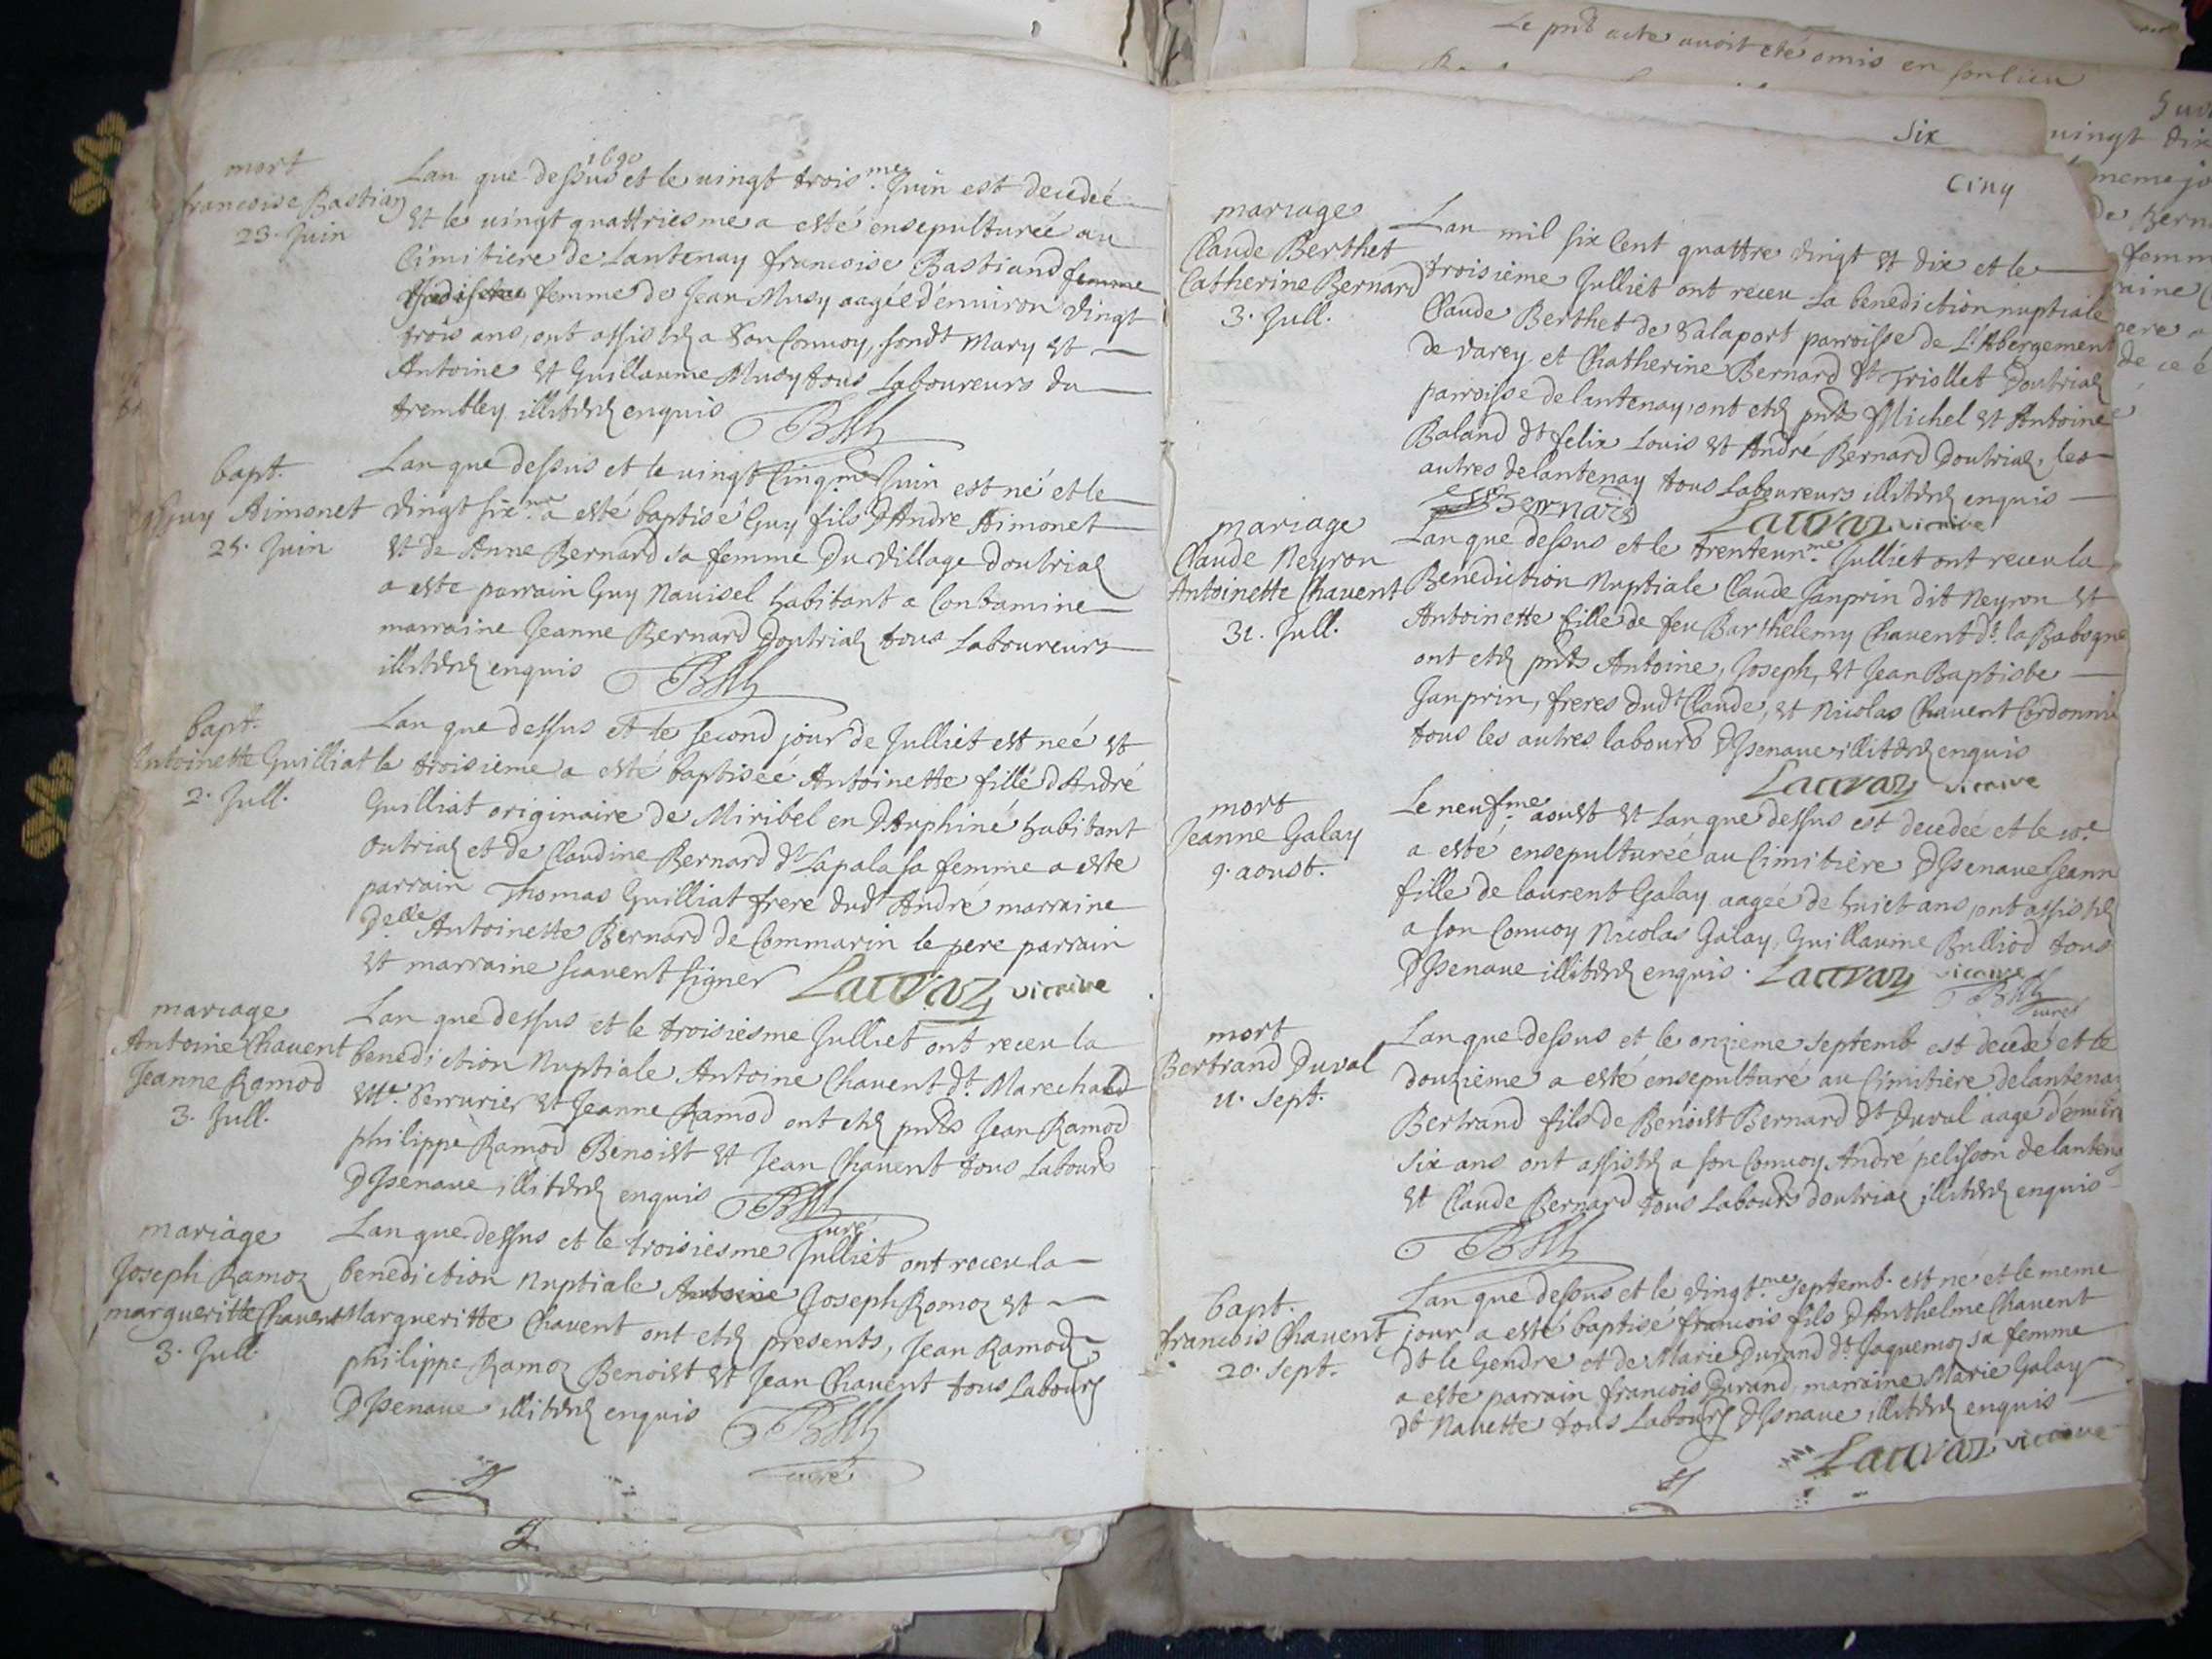 mort
francoise Bastian
23. Juin
1690
Lan que dessus et le vingt trois.me Juin est decedeé
et le vingt quattriesme a esté ensepulturée au
Cimitiere de Lantenay francoise Bastiand femme
femme de Jean Musy aagée d'environ vingt
trois ans, ont assistez a son Convoy, sondt Mary et
Antoine et Guillaume Musy tous Laboureurs du
trembley illiterez enquis
bapt.
Guy Aimonet
25. Juin
Lan que dessus et le vingt Cinq.me Juin est né et le
vingt six.me a esté baptisé Guy fils d'Andre Aimonet
et de Anne Bernard sa femme Du village doutriaz
a este parrain Guy Navisel habitant a Contamine
marraine Jeanne Bernard Doutriaz tous Laboureurs
illiterez enquis
bapt.
Antoinette Guilliat
2. Jull.
Lan que dessus et le second jour de Julliet est neé et
le troisieme a esté baptiseé Antoinette fille d'André
Guilliat originaire de Miribel en Dauphiné habitant
Outriaz et de Claudine Bernard dt Lapala sa femme a este
parrain Thomas Guilliat frere dudt André marraine
Delle Antoinette Bernard de Commarin le pere parrain
et marraine scavent signer Lacraz vicaire
mariage
Antoine Chavent
Jeanne Ramod
3. Jull.
Lan que dessus et le troisiesme Julliet ont receu la
benediction Nuptiale Antoine Chavent dt. Marechaud
et Me. Serrurier et Jeanne Ramod ont etez pnts Jean Ramod
philippe Ramod Benoist et Jean Chavent tous Labours
D'Isenave illiterez enquis
curé
mariage
Joseph Ramoz
margueritte Chavent
3. Jull.
Lan que dessus et le troisiesme Julliet ont receu la
benediction Nuptiale Antoine Joseph Ramoz et
Margueritte Chavent ont etez presents, Jean Ramod
philippe Ramoz Benoist et Jean Chavent tous Labours
D'Isenave illiterez enquis
curé
Le pnt acte avoit eté omis en son lieu
Six
Cinq
mariage
Claude Berthet
Catherine Bernard
3. Jull.
Lan mil six Cent quattre vingt et dix et le
troisieme Julliet ont receu la benediction nuptiale
Claude Berthet de Valaport parroisse de L'Abergement
de varey et Chatherine Bernard dt Triollet Doutriaz
parroisse de lantenay, ont etez pnts Michel et Antoine
Baland dt felix Louis et André Bernard Doutriaz, les
autres de lantenay tous Laboureurs illiterez enquis
Bernard Lacraz vicaire
mariage
Claude Neyron
Antoinette Chavent
31. Jull.
Lan que dessus et le trenteun.me Julliet ont receu la
Benediction Nuptiale Claude Janprin dit Neyron et
Antoinette fille de feu Barthelemy Chavent dt. la Babogne
ont etez pnts Antoine, Joseph, et Jean Baptiste
Janprin, freres dudt Claude, et Nicolas Chavent Cordonnie
tous les autres labours D'Isenave illiterez enquis
Lacraz vicaire
mort
Jeanne Galay
9. aoust.
Le neuf.me aoust et Lan que dessus est decedeé et le 10.e
a esté ensepultureé au Cimitière D'Isenave Jeann
fille de laurent Galay aageé de huict ans, ont assistez
a son Convoy Nicolas Galay, Guillaume Bulliod tous
D'Isenave illiterez enquis. Lacraz vicaire
curé
mort
Bertrand Duval
11. Sept.
Lan que dessus et le onzieme Septemb est decedé et le
douzième a esté ensepulturé au Cimitière de lantenay
Bertrand fils de Benoist Bernard dt Duval aagé d'enviro
six ans ont assistez a son Convoy André pelisson de lantenay
et Claude Bernard tous Labours doutriaz illiterez enquis
bapt.
francois Chavent
20. Sept.
Lan que dessus et le vingt.me Septemb. est né et le meme
jour a esté baptisé francois fils D'Anthelme Chavent
dt le Gendre et de Marie Durand dt Jaquemoz sa femme
a este parrain francois Durand, marraine Marie Galay
dt Navette tous Labours D'Isnave illiterez enquis
Lacraz vicaire